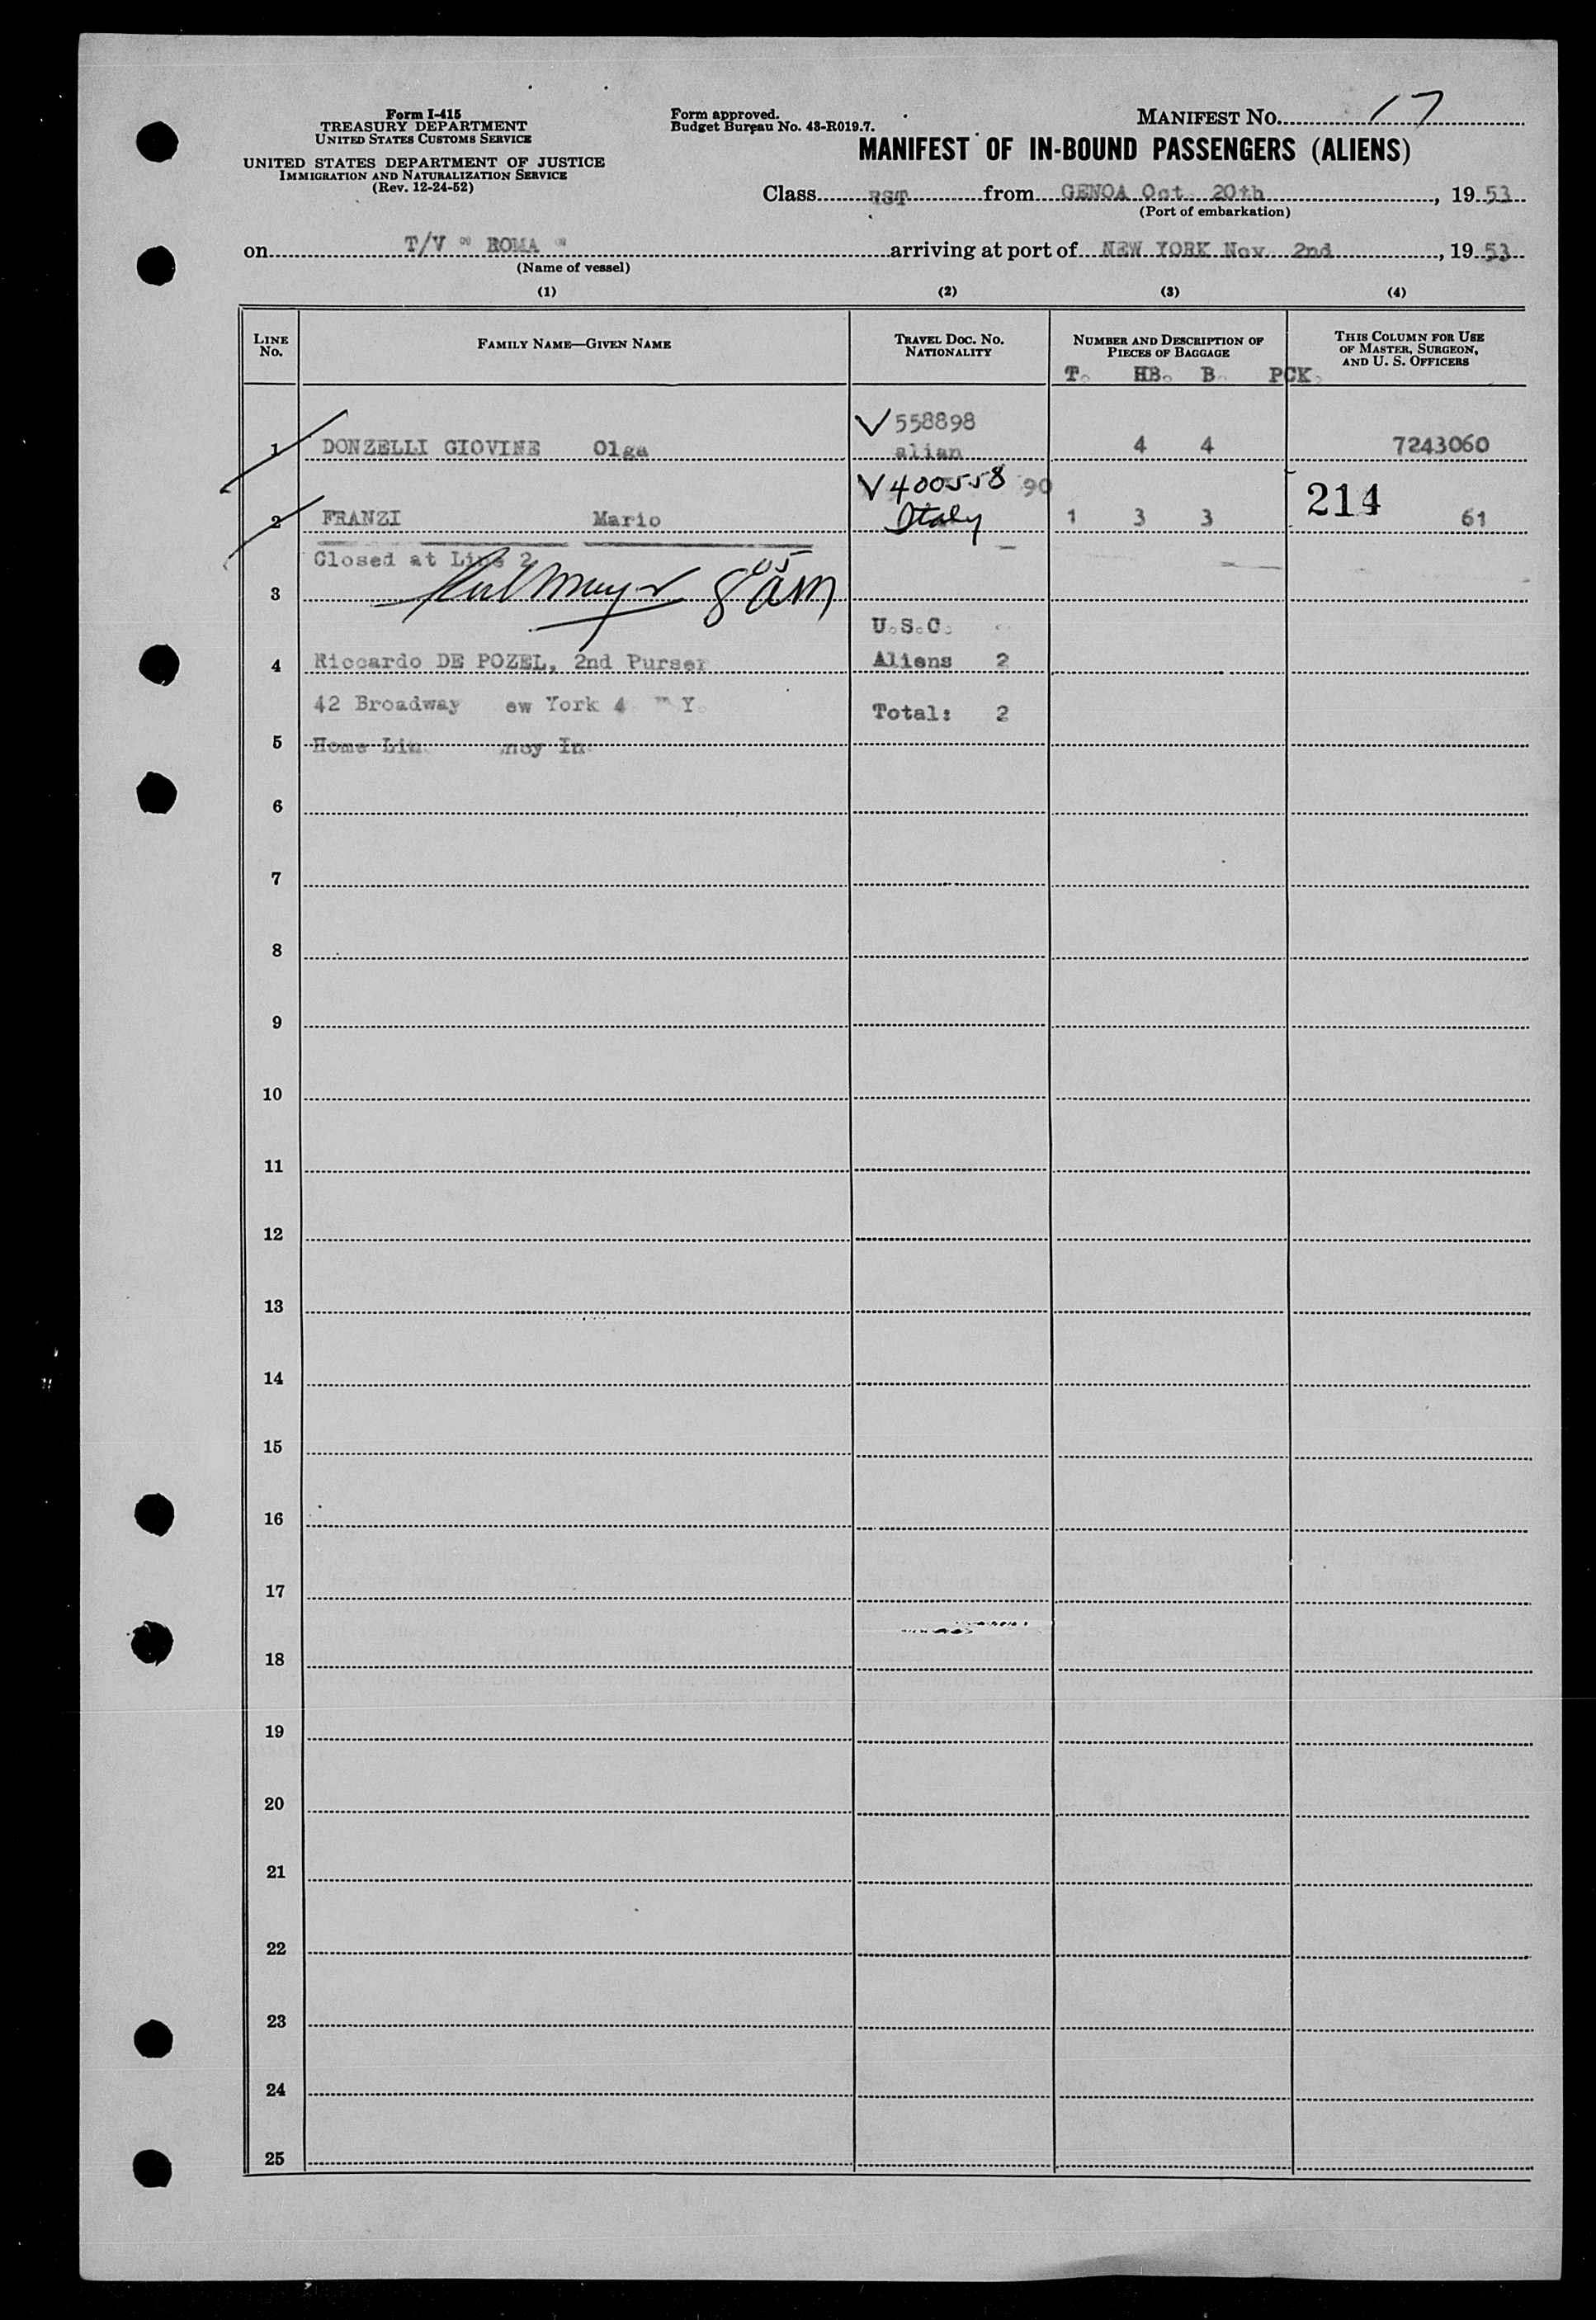 Form I-415
TREASURY DEPARTMENT
UNITED STATES CUSTOMS SERVICE
UNITED STATES DEPARTMENT OF JUSTICE
IMMIGRATION AND NATURALIZATION SERVICE
(Rev. 12-24-52)
Form approved.
Budget Bureau No. 43-R019.7.
MANIFEST NO. 17
MANIFEST OF IN-BOUND PASSENGERS (ALIENS)
Class RST from GENOA Oct. 20th, 1953
(Port of embarkation)
on T/V " ROMA " arriving at port of NEW YORK Nov. 2nd, 1953
(Name of vessel)
(1) (2) (3) (4)
LINE NO. FAMILY NAME—GIVEN NAME TRAVEL DOC. NO. NATIONALITY NUMBER AND DESCRIPTION OF PIECES OF BAGGAGE THIS COLUMN FOR USE OF MASTER, SURGEON, AND U. S. OFFICERS
T. HB. B. PCK.
V 558898
1 DONZELLI GIOVINE Olga alian 4 4 7243060
V 400558 90
2 FRANZI Mario Italy 1 3 3 214 61
Closed at Line 2
3 8 05 AM
U.S.C.
4 Riccardo DE POZEL, 2nd Purser Aliens 2
42 Broadway ew York 4 Y. Total: 2
5 Home Lin ncy In
6
7
8
9
10
11
12
13
14
15
16
17
18
19
20
21
22
23
24
25